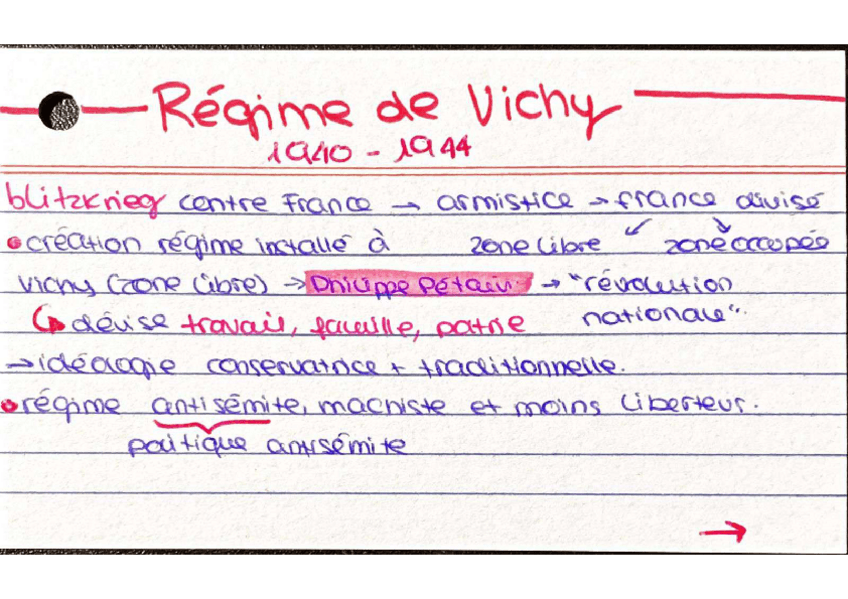 Régime de Vichy
1940 - 1944
blitzkrieg contre France → armistice → france divisé
• création régime installé à zone libre ↙ ↘ zone occupée
vichy (zone libre) → Philippe Pétain → "révolution
↳ dévise travail, famille, patrie nationale".
→ idéologie conservatrice + traditionnelle.
• régime antisémite, machiste et moins liberteur.
politique antisémite
→